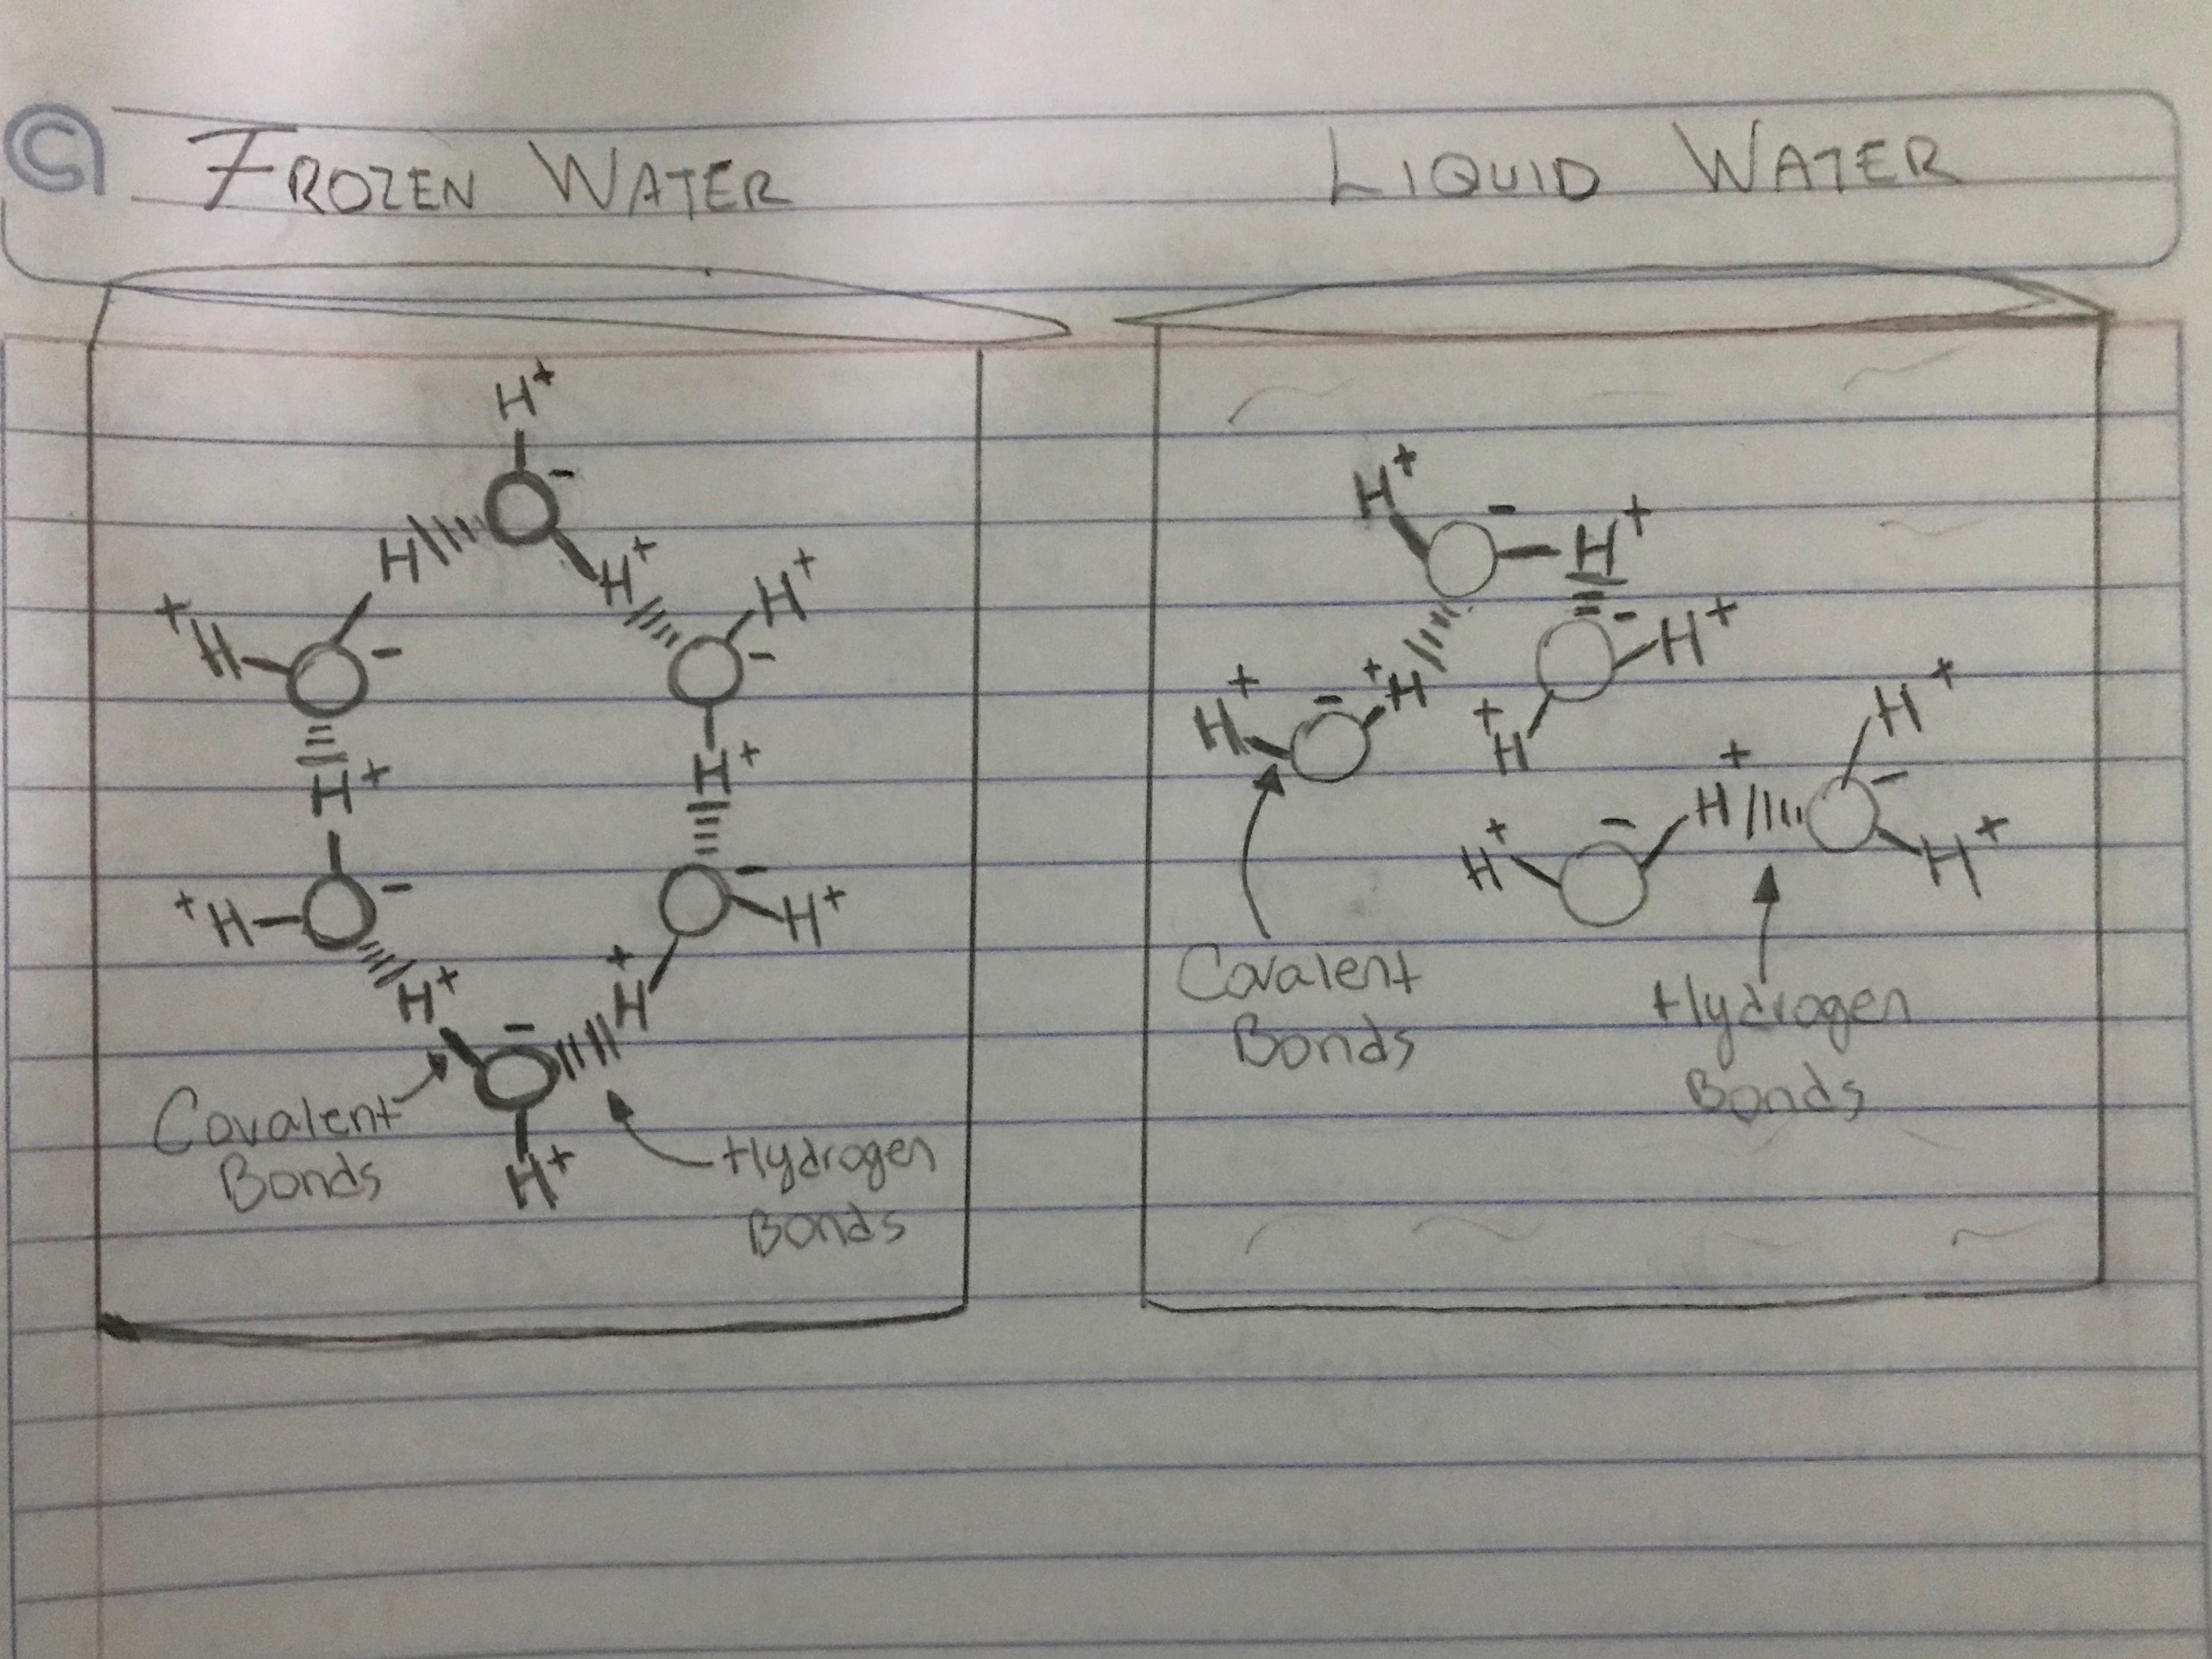 FROZEN WATER
LIQUID WATER
H+
-
H
H+
H+
+H
-
-
H+
H+
+H
-
-
H+
H+
+
H
-
H+
Covalent
Bonds
Hydrogen
Bonds
H+
-
H+
-
H+
+
H
-
+
H
+
H
H+
+
H
-
+
H
-
H+
+
H
Covalent
Bonds
Hydrogen
Bonds